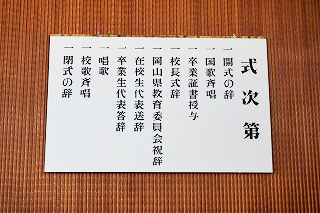 式次第
一開式の辞
一国歌斉唱
一卒業証書授与
一校長式辞
一岡山県教育委員会祝辞
一在校生代表送辞
一卒業生代表答辞
一唱歌
一校歌斉唱
一閉式の辞